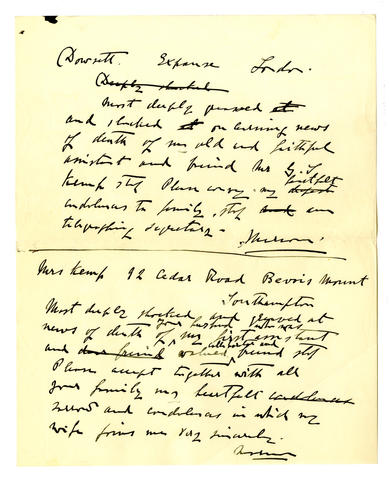 Dowsett. Expanse London.
Deeply shocked
Most deeply grieved at
and shocked at on arriving news
of death of my old and faithful
assistant and friend Mr G. S.
Kemp stop Please convey my deepest heartfelt
condolences to family stop and am
telegraphing Signature -
Marconi
Mrs Kemp 92 Cedar Road Bevois Mount
Southampton
Most deeply shocked and grieved at
news of death of your husband who was
my first assistant
and dear friend valued friend stop
Please accept together with all
your family my heartfelt condolences
sorrow and condolences in which my
wife joins me very sincerely.
Marconi